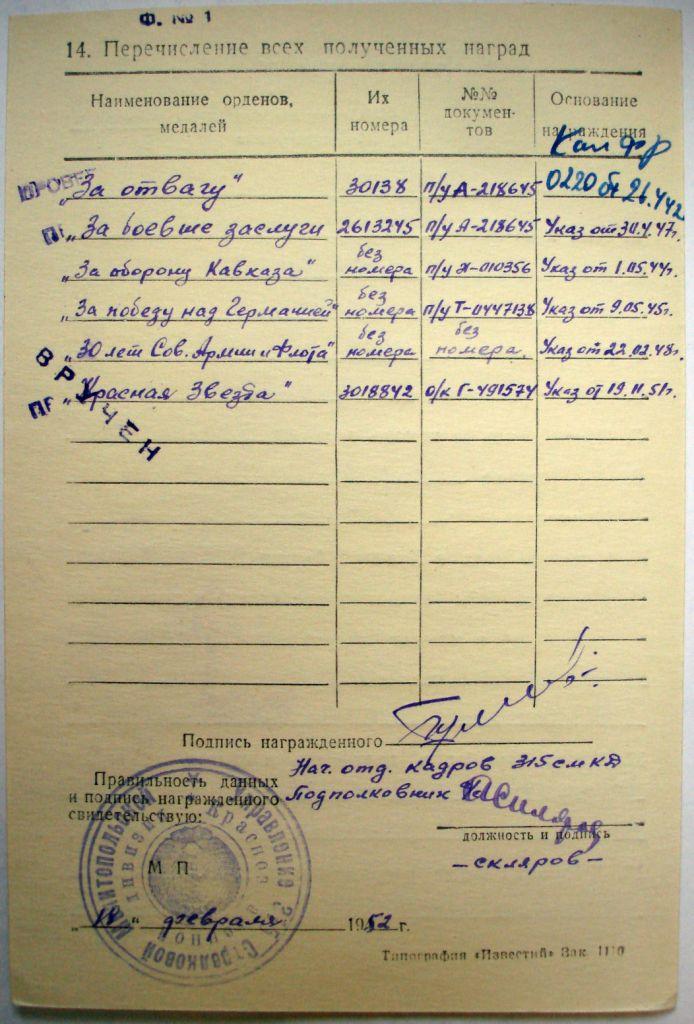 Ф. № 1
14. Перечисление всех полученных наград
Наименование орденов, медалей
Их номера
№№ документов
Основание награждения
„За отвагу“ 30138 п/у А-218645 0220 от 26.442
„За боевые заслуги 2613245 п/у А-218645 Указ от 30.4.47г.
„За оборону Кавказа“ без номера п/у Ж-010356 Указ от 1.05.44г.
„За победу над Германией“ без номера п/у Т-0447138 Указ от 9.05.45г.
„30 лет Сов. Армии и Флота“ без номера без номера. Указ от 22.02.48г.
„Красная Звезда“ 3018842 о/к Г-491574 Указ от 19.11.51г.
ВРУЧЕН
Подпись награжденного
Нач. отд. кадров 315 смкд
Правильность данных
и подпись награжденного
свидетельствую:
Подполковник Скляров
должность и подпись
М П
– скляров –
„18“ февраля 1952 г.
Типография «Известий» Зак. 1110
Управление Стрелковой Мелитопольской Краснознаменной дивизии